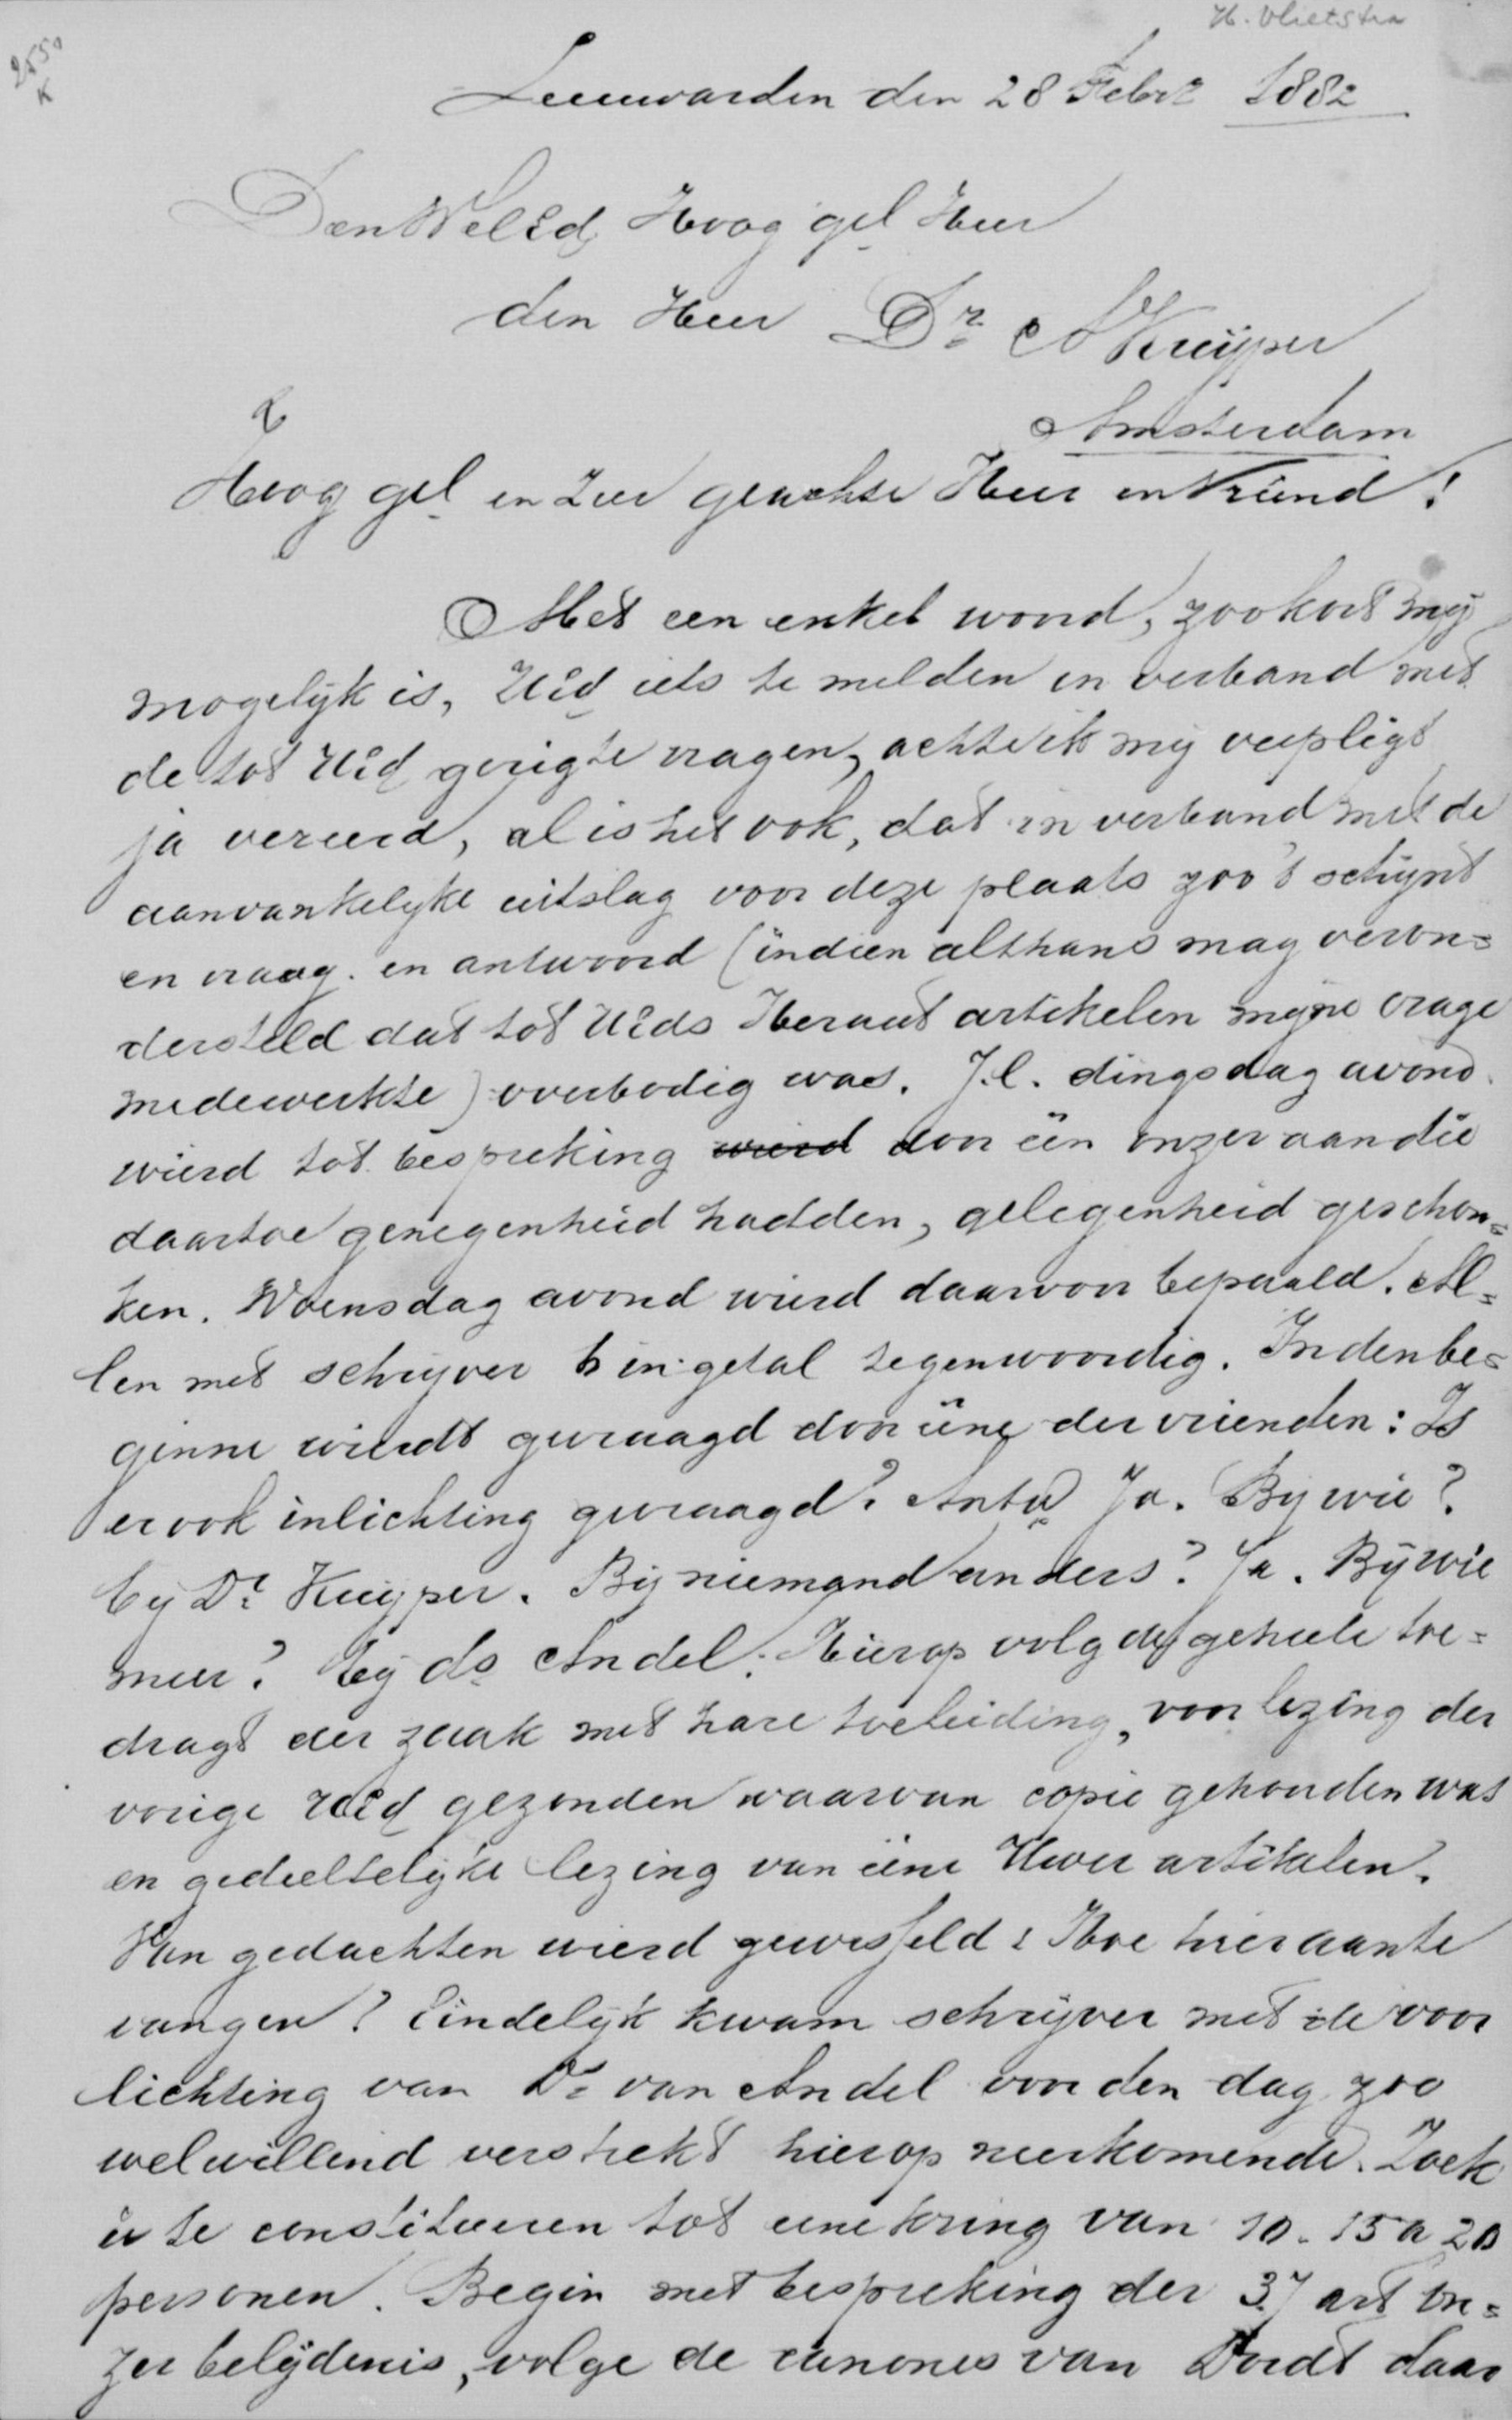 H. Vlietstra
2550
K
Leeuwarden den 28 Febr 1882
Den WelEd. Hoog gel Heer
den Heer Dr A Kuijper
Amsterdam
Hoog gel en Zeer geachte Heer en Vriend!
Met een enkel woord, zoo kort mij
mogelijk is, UEd iets te melden in verband met
de tot UEd gerigte vragen, achtte ik mij verpligt
ja vereerd, al is het ook, dat in verband met de
aanvankelijke uitslag voor deze plaats zoo 't schijnt
en vraag. en antwoord (indien althans mag veron=
dersteld dat tot UEds Heraut artikelen mijne vrage
medewerkte) overbodig was. J.l. dingsdag avond
wierd tot bespreking wierd door één onzer aan die
daartoe genegenheid hadden, gelegenheid geschon=
ken. Woensdag avond wierd daarvoor bepaald. Al=
len met schrijver 6 in getal tegenwoordig. In den be=
ginne wierdt gevraagd door eene der vrienden: Is
er ook inlichting gevraagd? Antw Ja. Bij wie?
bij Dr Kuijper. Bij niemand anders? Ja. Bij wie
meer? bij ds Andel. Hierop volgde geheele toe=
dragt der zaak met hare toeleiding, voorlezing der
vorige UEd gezonden waarvan copie gehouden was
en gedeeltelijke lezing van eene Uwer artikelen.
Van gedachten wierd gewisseld: Hoe hier aan te
vangen? Eindelijk kwam schrijver met de voor
lichting van Ds van Andel voor den dag zoo
welwillend verstrekt hierop neerkomende. Zoek
u te constitueren tot eene kring van 10. 15 a 20
personen. Begin met bespreking der 37 art on=
zer belijdenis, volge de canones van Dordt daar